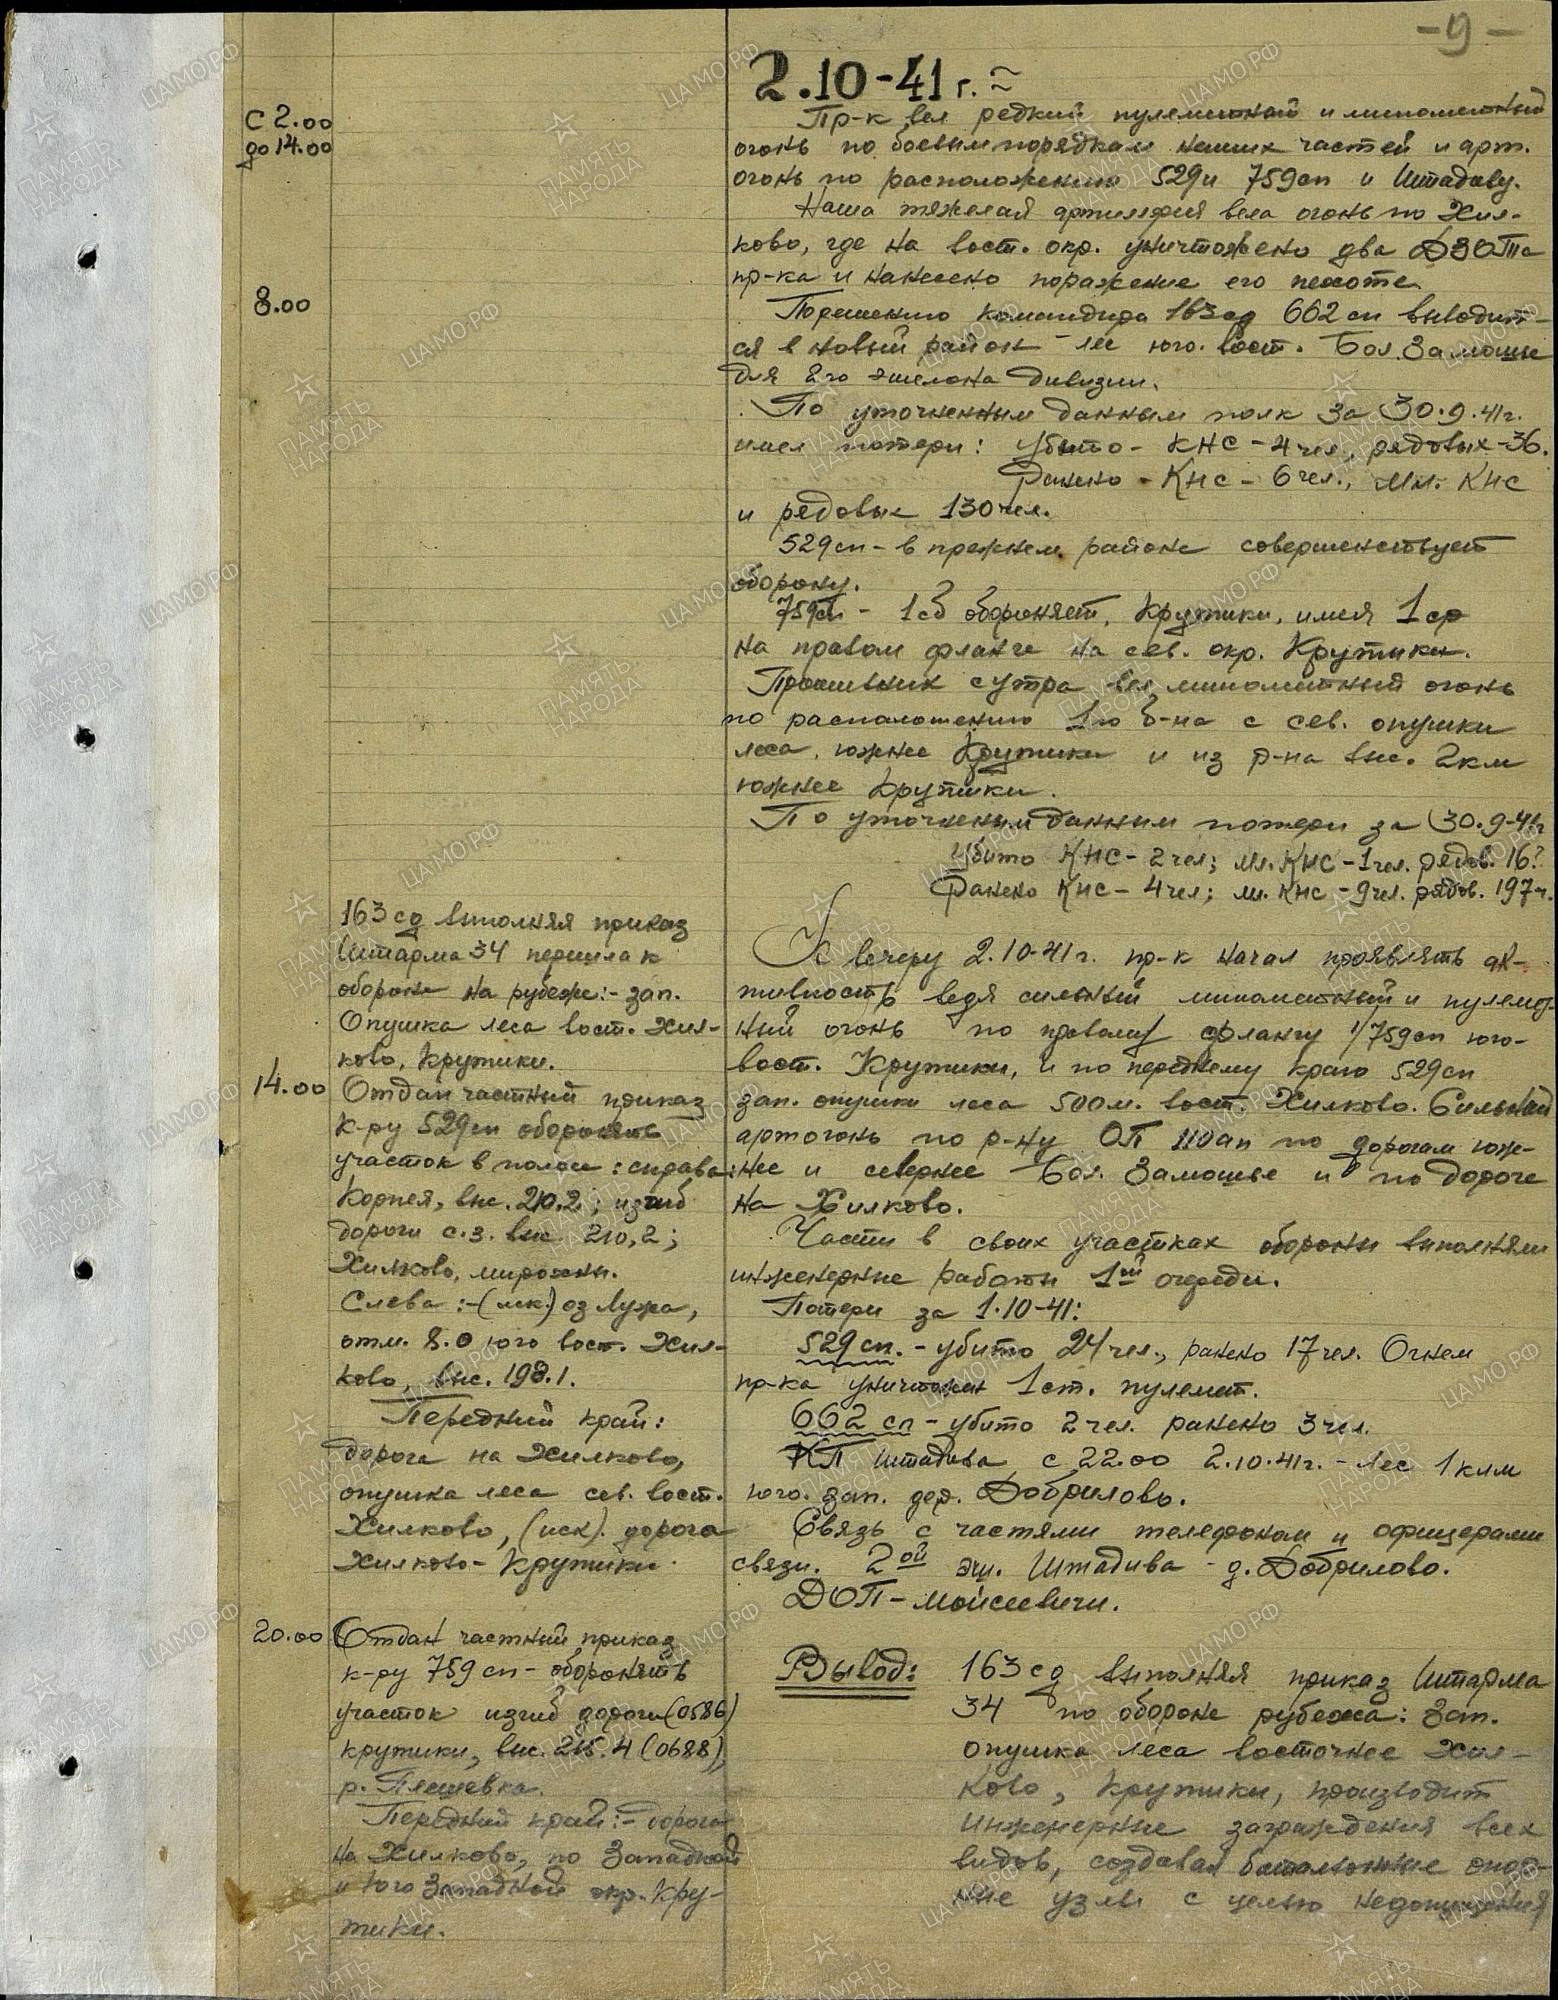 -9-
2.10-41 г.
С 2.00
до 14.00
Пр-к вел редкий пулеметный и минометный
огонь по боевым порядкам наших частей и арт.
огонь по расположению 529 и 759сп и Штадиву.
Наша тяжелая артилерия вела огонь по Хил-
ково, где на вост. окр. уничтожено два ДЗОТа
пр-ка и нанесено поражение его пехоте.
8.00
По решению командира 163сд 662 сп выводит-
ся в новый район - лес юго. вост. Бол. Замошье
для 2го эшелона дивизии.
По уточненным данным полк за 30.9.41г.
имел потери: убито - КНС - 4 чел., рядовых - 36.
Ранено - КНС - 6 чел., Мл. КНС
и рядовые 130 чел.
529сп - в прежнем районе совершенствует
оборону.
759сп - 1сб обороняет, Крутики, имея 1ср
на правом фланге на сев. окр. Крутики.
Противник с утра вел минометный огонь
по расположению 1го б-на с сев. опушки
леса, южнее Крутики и из р-на выс. 2км
южнее Крутики.
По уточненным данным потери за 30.9-41г
Убито КНС - 2 чел; мл. КНС - 1 чел. рядов. 16?
Ранено КНС - 4 чел; мл. КНС - 9 чел. рядов. 197 ч.
163 сд выполняя приказ
Штарма 34 перешла к
обороне на рубеже: - зап.
Опушка леса вост. Хил-
ково, Крутики.
14.00
Отдан частный приказ
К-ру 529сп оборонять
участок в полосе: справа:
Корпея, выс. 210,2; изгиб
дороги с.з. выс. 210,2;
Хилково,
Слева: - (иск.) оз Лужа,
отм. 8.0 юго вост. Хил-
ково, выс. 198.1.
Передний край:
дорога на Хилково,
опушка леса сев. вост.
Хилково, (иск). дорога
Хилково - Крутики.
20.00
Отдан частный приказ
к-ру 759 сп - оборонять
участок изгиб дороги (0586)
крутики, выс. 215.4 (0688),
р. Плешевка.
Передний край: - дорога
на Хилково, по Западной
и Юго Западной окр. Кру-
тики.
К вечеру 2.10-41г. пр-к начал проявлять ак-
тивность ведя сильный минометный и пулемет
ный огонь по правому флангу 1/759сп юго-
вост. Крутики, и по переднему краю 529сп
зап. опушки леса 500м. вост. Хилково. Сильный
артогонь по р-ну ОП 110ап по дорогам юж-
нее и севернее Бол. Замошье и по дороге
на Хилково.
Части в своих участках обороны выполняли
инженерные работы 1ой очереди.
Потери за 1.10-41:
529 сп. - убито 24 чел., ранено 17 чел. Огнем
пр-ка уничтожен 1 ст. пулемет.
662 сп - убито 2 чел. ранено 3 чел.
КП штадива с 22.00 2.10.41г. - лес 1 клм
юго. зап. дер. Добрилово.
Связь с частями телефоном и офицерами
связи. 2ой эш. Штадива - д. Добрилово.
ДОП - Мойсеевичи.
Вывод: 163 сд выполняя приказ Штарма
34 по обороне рубежа: Зап.
опушка леса восточнее Хил-
ково, Крутики, производит
Инженерные заграждения всех
видов, создавая батальонные опор-
ные узлы с целью недопущения